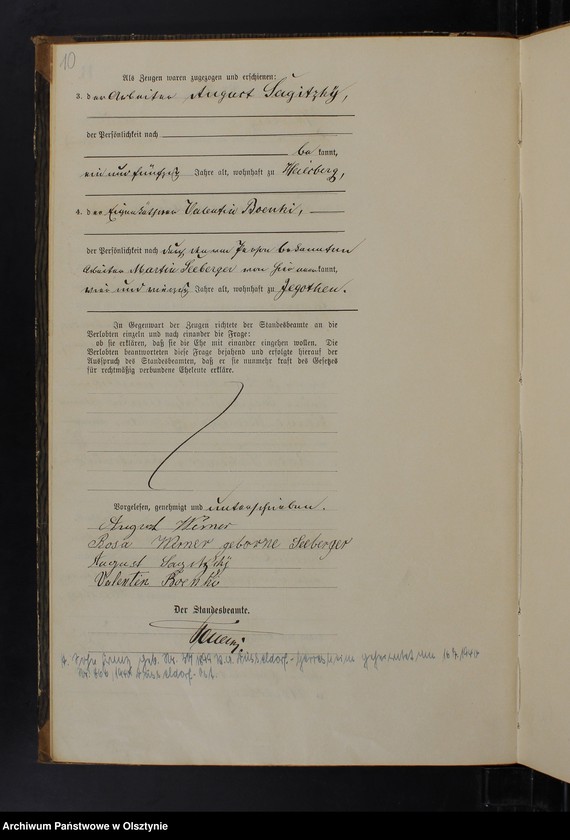 10
Als Zeugen waren zugezogen und erschienen:
3. der Arbeiter August Sagitzky,
der Persönlichkeit nach
be kannt,
ein und fünfzig Jahre alt, wohnhaft zu Heilsberg,
4. der Eigenkäthner Valentin Boenki,
der Persönlichkeit nach durch den von Person bekannten
Arbeiter Martin Seeberger von hier anerkannt,
vier und vierzig Jahre alt, wohnhaft zu Jegothen.
In Gegenwart der Zeugen richtete der Standesbeamte an die
Verlobten einzeln und nach einander die Frage:
ob sie erklären, daß sie die Ehe mit einander eingehen wollen. Die
Verlobten beantworteten diese Frage bejahend und erfolgte hierauf der
Ausspruch des Standesbeamten, daß er sie nunmehr kraft des Gesetzes
für rechtmäßig verbundene Eheleute erkläre.
Vorgelesen, genehmigt und unterschrieben.
August Werner
Rosa Werner geborne Seeberger
August Sagitzky
Valentin Boenki
Der Standesbeamte.
Sohn Franz geb. Nr.
Düsseldorf-Gerresheim geheiratet am
Düsseldorf-Ost.
Archiwum Państwowe w Olsztynie